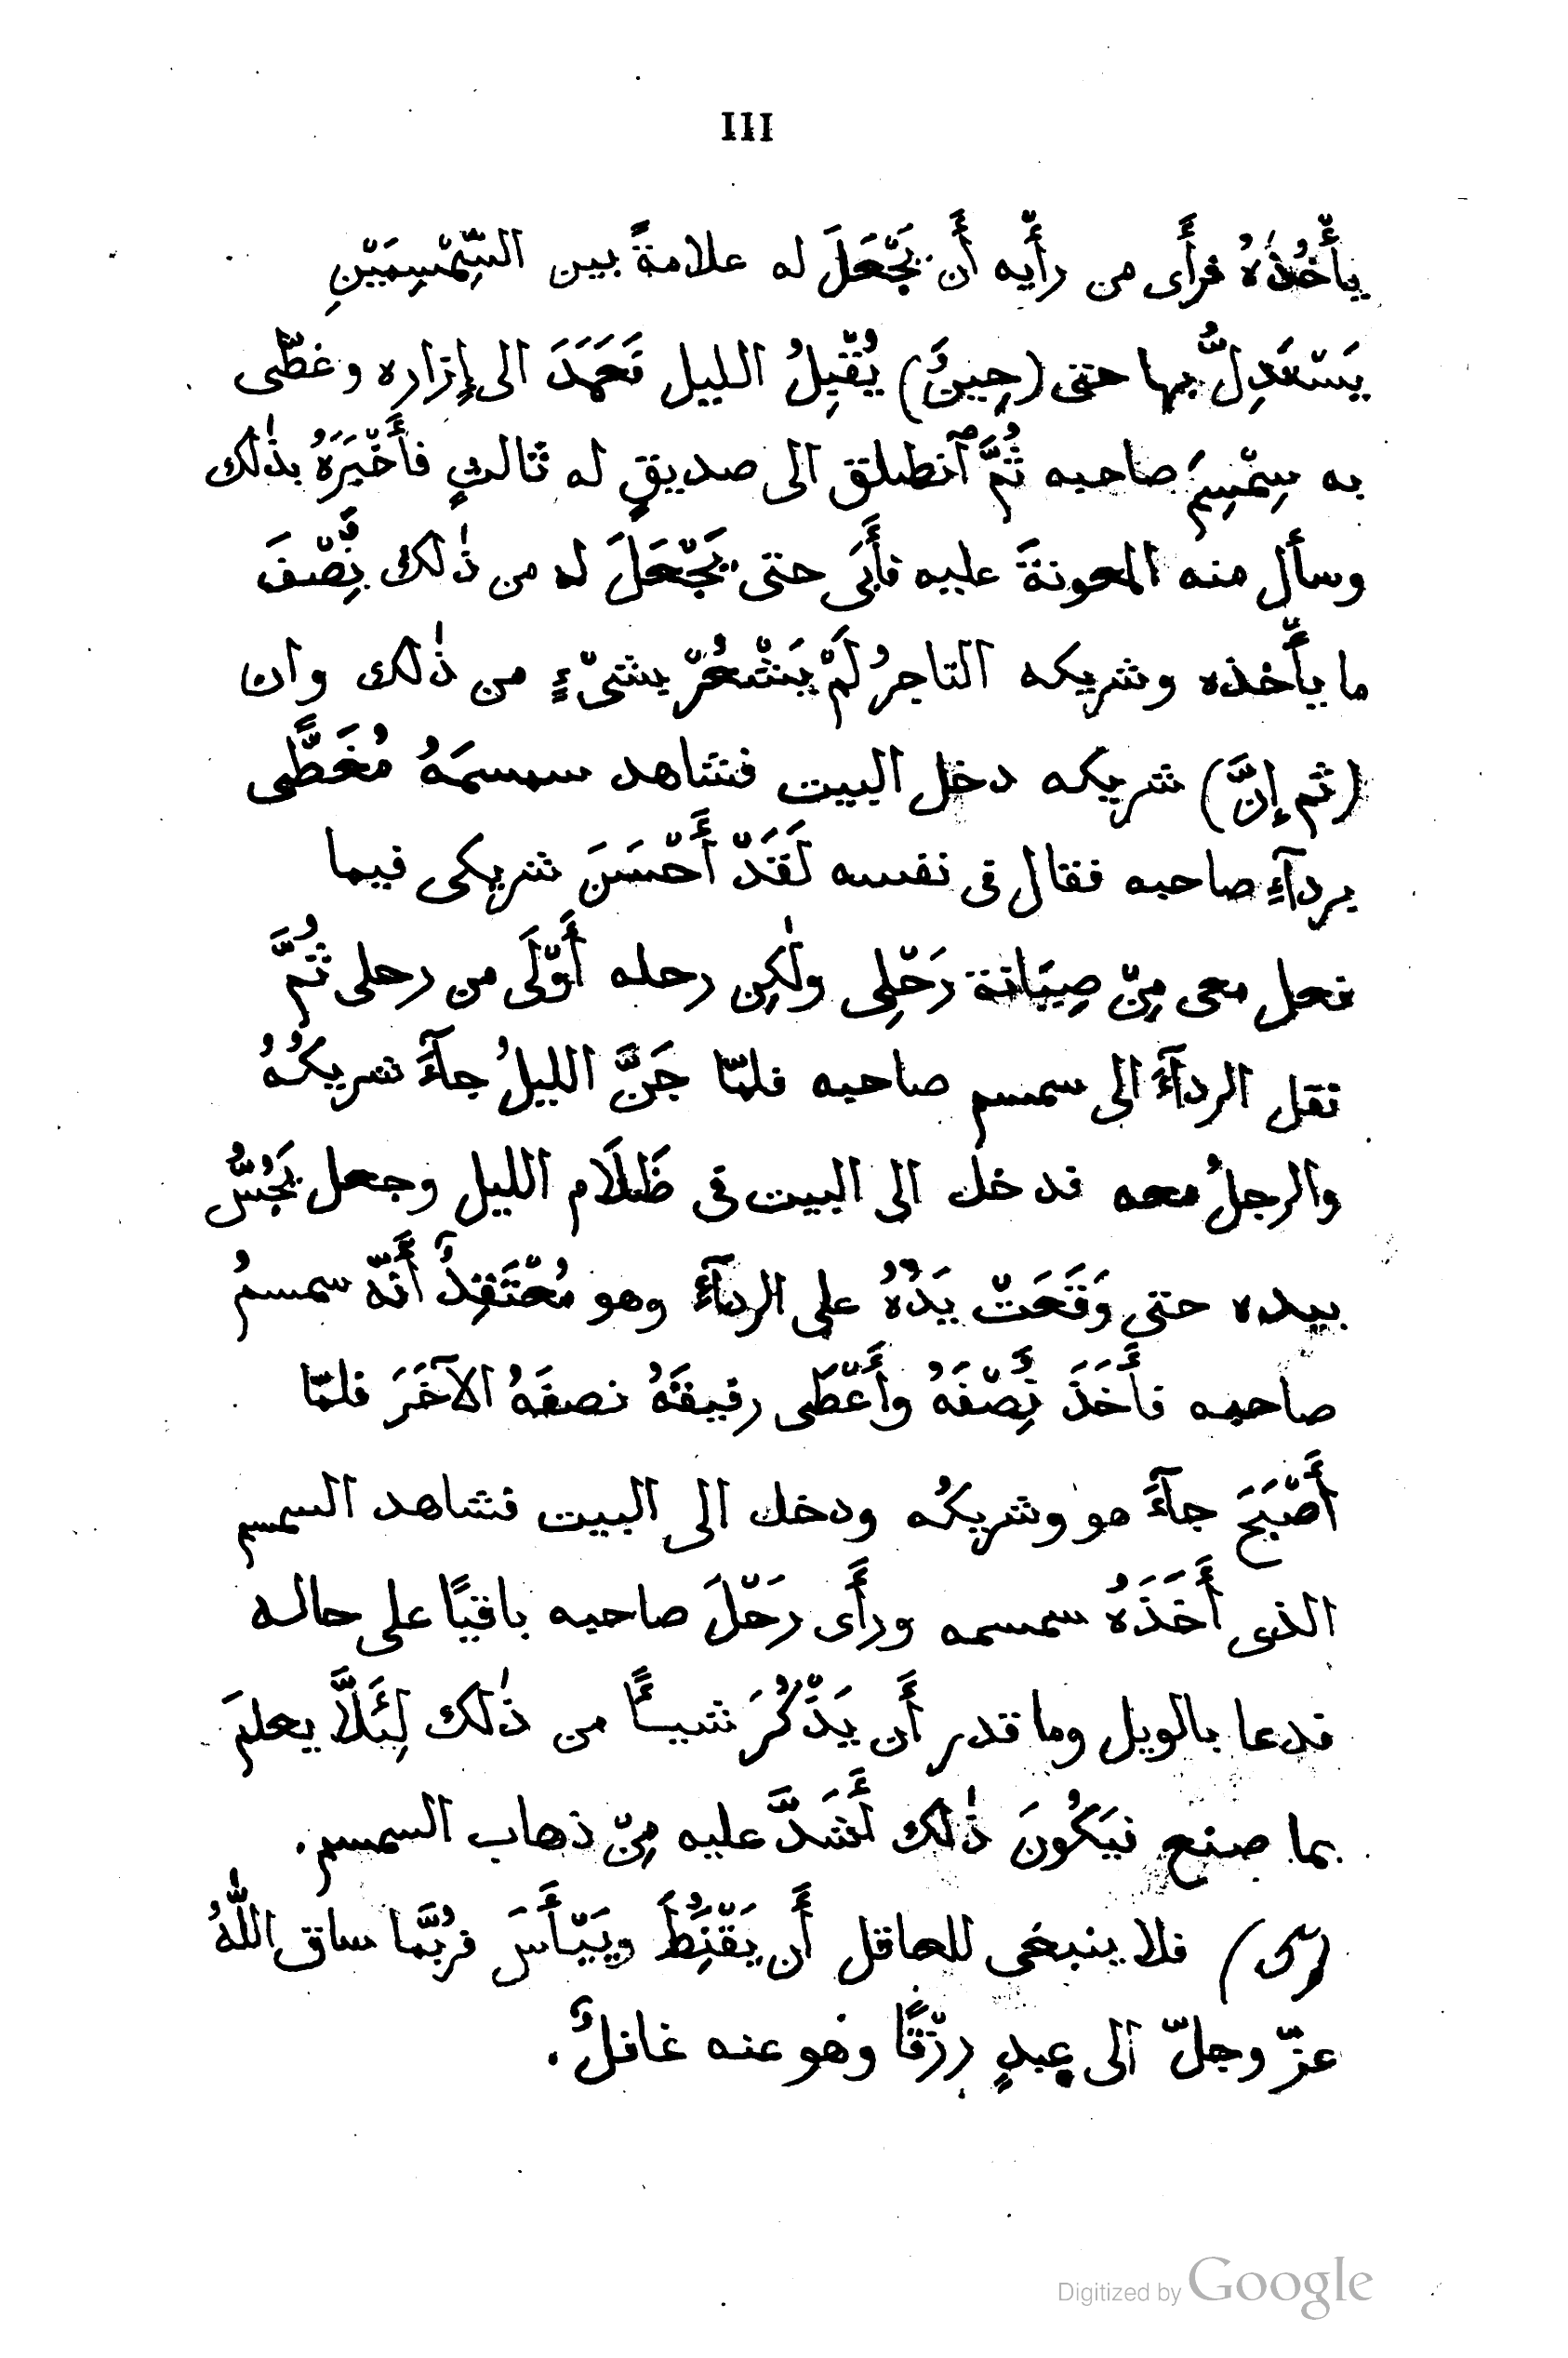 III
يأْخُذُهُ فرأَى من رأْيه أَن يَجْعَلَ له علامةً بين السِّمْسِمَيْنِ
يَسْتَدِلُّ بها حتى (حِينَ) يُقْبِلُ الليل فَعَمَدَ الى إِزاره وغطّى
به سِمْسِمَ صاحبه ثُمَّ ٱنطلق الى صديقٍ له ثالثٍ فأَخْبَرَهُ بذٰلك
وسأل منه المعونةَ عليه فأَبَى حتى يَجْعَلَ له من ذٰلك نِصْفَ
ما يأْخذه وشريكه التاجرُ لَمْ يَشْعُرْ بشىْءٍ من ذٰلك وان
(ثم إنَّ) شريكه دخل البيت فشاهد سمسمَهُ مُغَطًّى
برِدآءِ صاحبه فقال فى نفسه لَقَدْ أَحْسَنَ شريكى فيما
فعل معى مِنْ صِيَانة رَحْلِى ولٰكِن رحله أَوْلَى من رحلى ثُمَّ
نقل الردآءَ الى سمسم صاحبه فلمّا جَنَّ الليلُ جآءَ شريكُهُ
والرجلُ معه فدخل الى البيت فى ظَلَام الليل وجعل يَجُسُّ
بيده حتى وَقَعَتْ يَدُهُ على الردآءِ وهو مُعْتَقِدٌ أَنّه سمسمُ
صاحبه فأَخَذَ نِصْفَهُ وأَعْطَى رفيقَهُ نصفَهُ الآخَرَ فلمّا
أَصْبَحَ جآءَ هو وشريكُه ودخل الى البيت فشاهد السمسم
الذى أَخَذَهُ سمسمه ورأَى رَحْلَ صاحبه باقيًا على حاله
فدعا بالويل وما قدر أَن يَذْكُرَ شيـئًا من ذٰلك لِئَلَّا يعلمَ
بما صنع فيَكُونَ ذٰلك أَشَدَّ عليه مِنْ ذهاب السمسم.
فلا ينبغى للعاقل أَن يَقْنُِطَ ويَيْأَسَ فرُبَّما ساق اللّٰهُ
عزّ وجلّ الى عبدٍ رِزْقًا وهو عنه غافلٌ.
Digitized by Google